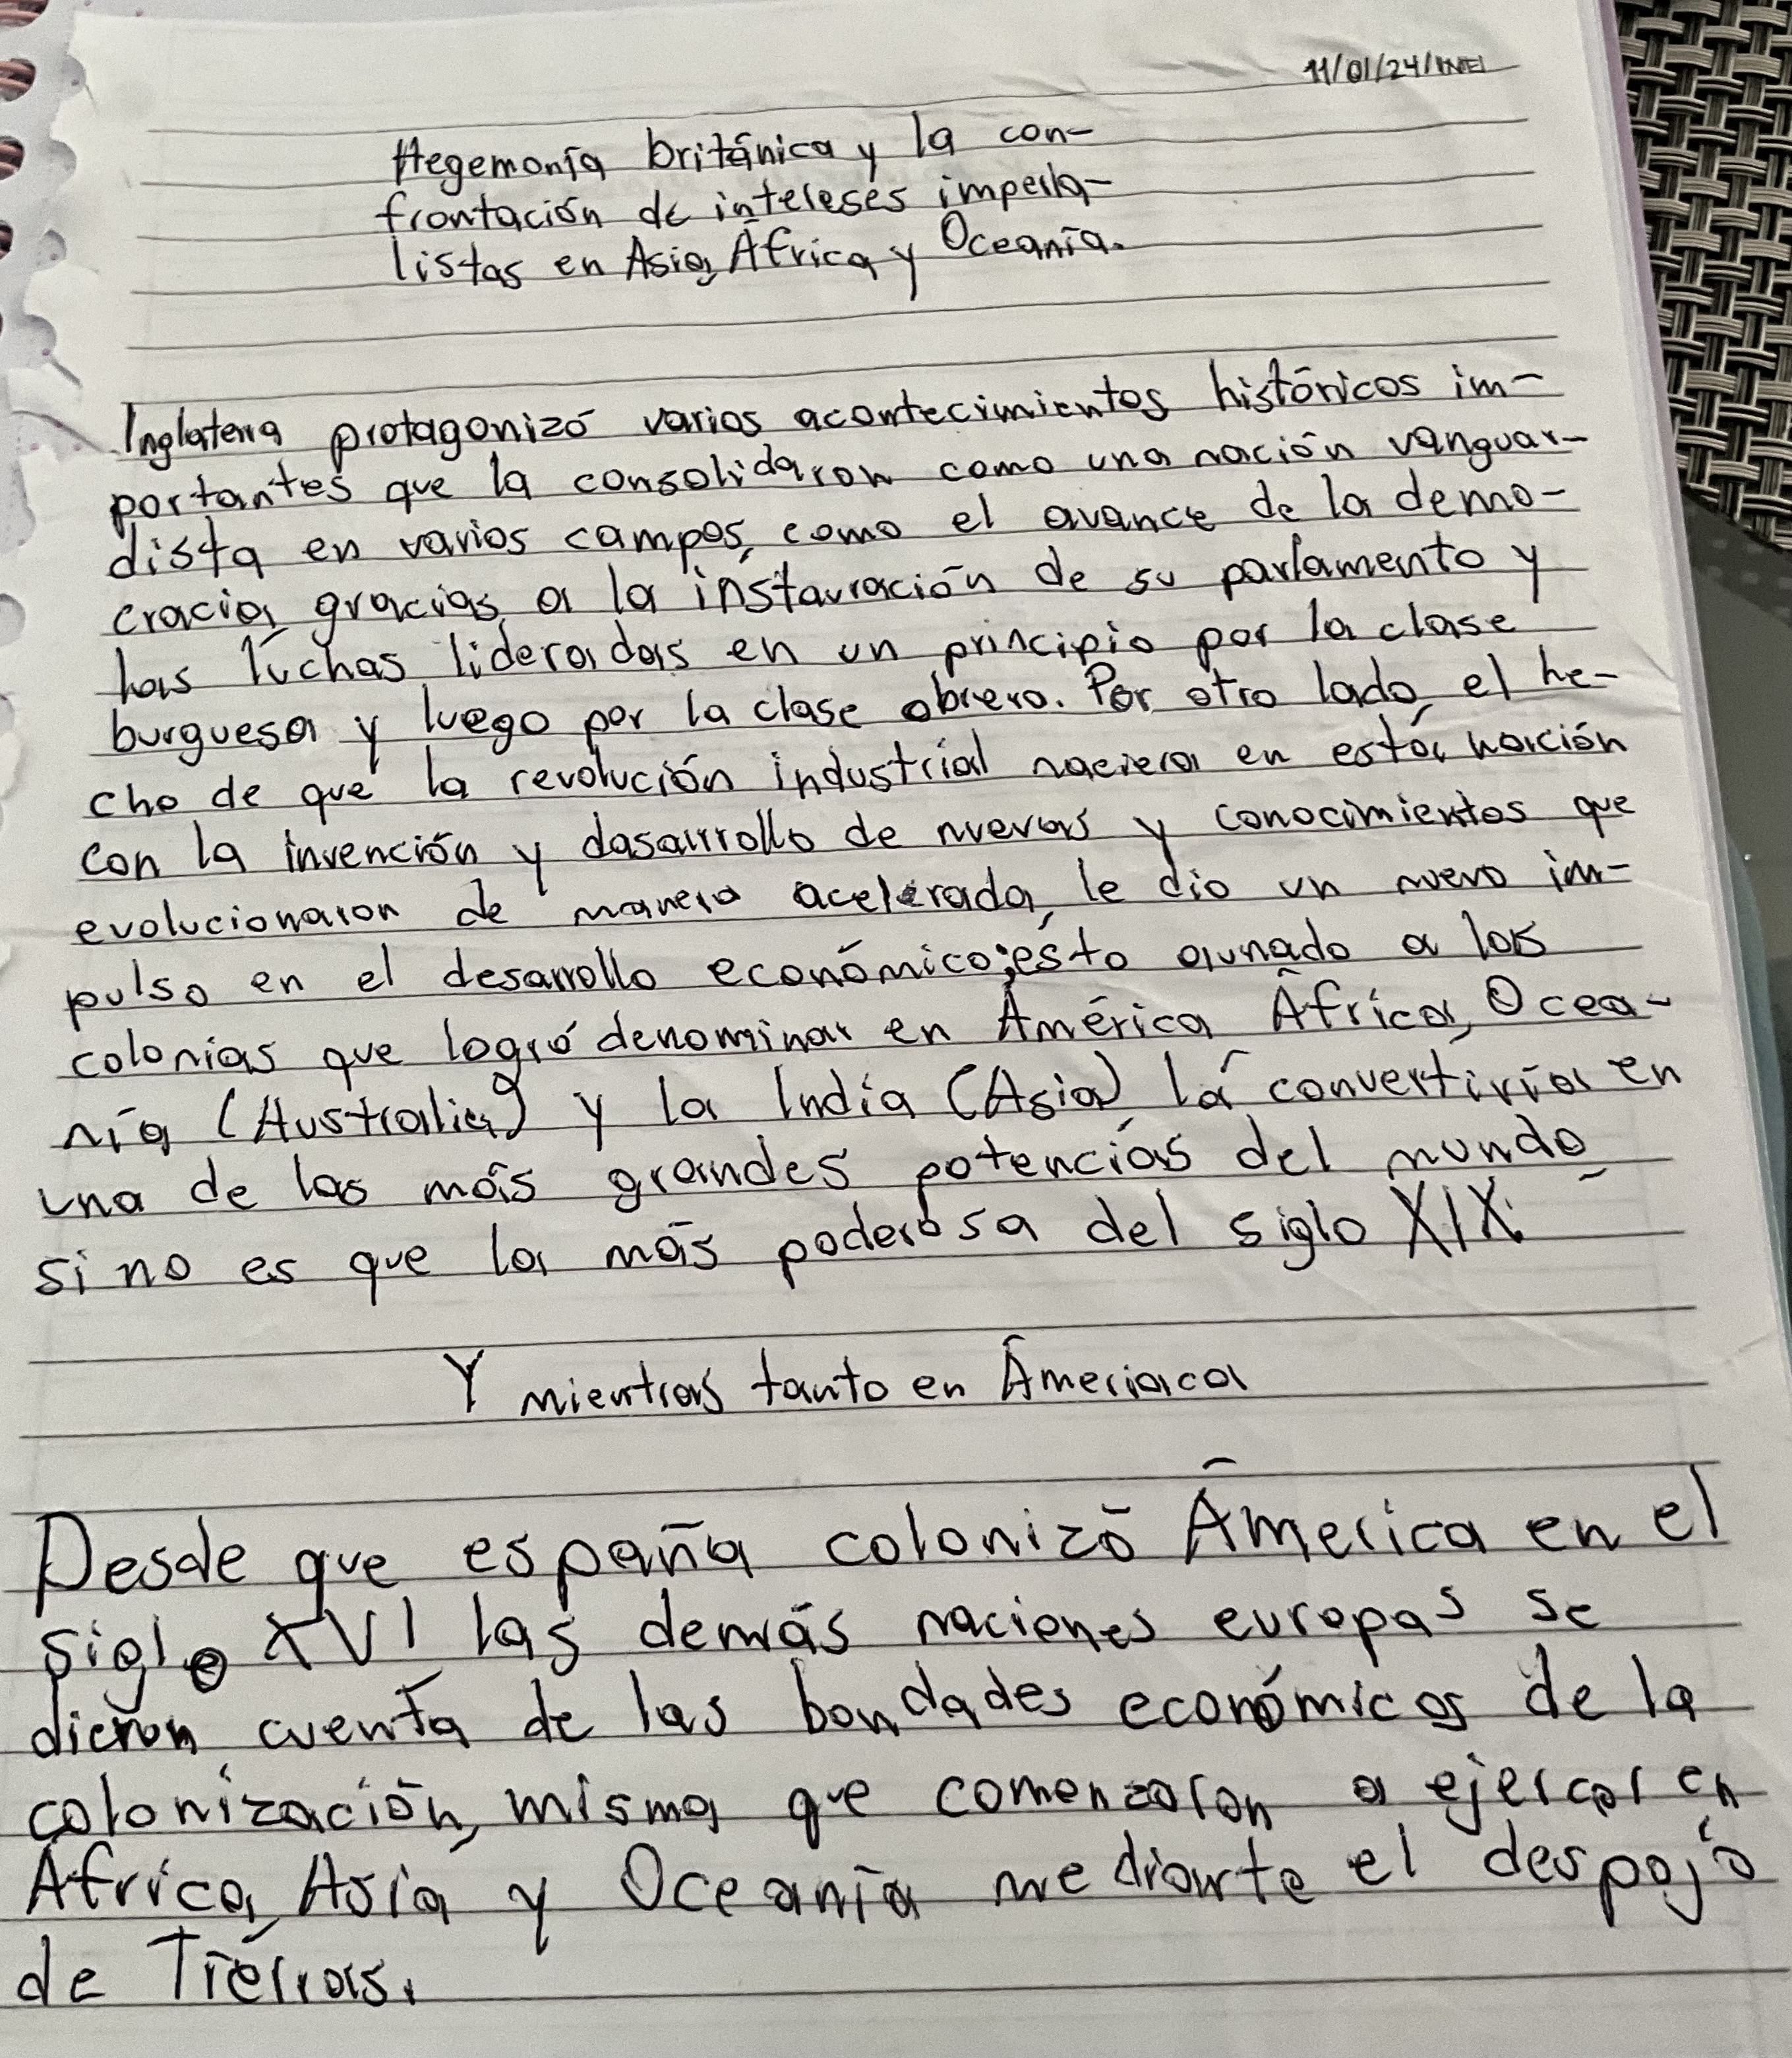 11/01/24/INEI
Hegemonía británica y la con-
frontación de intereses imperia-
listas en Asia, África y Oceanía.
Inglaterra protagonizó varios acontecimientos históricos im-
portantes que la consolidaron como una nación vanguar-
dista en varios campos, como el avance de la demo-
cracia, gracias a la instauración de su parlamento y
las luchas lideradas en un principio por la clase
burguesa y luego por la clase obrero. Por otro lado, el he-
cho de que la revolución industrial naciera en está nación
con la invención y dasarrollo de nuevas y conocimientos que
evolucionaron de manera acelerada, le dio un nuevo im-
pulso en el desarrollo económico; esto aunado a las
colonias que logró denominar en América África, Ocea-
nía (Australia) y la India (Asia) la convertiría en
una de las más grandes potencias del mundo
si no es que la más poderosa del siglo XIX.
Y mientras tanto en Ameriaca
Desde que españa colonizó América en el
siglo XVI las demás naciones europas se
dieron cuenta de las bondades económicas de la
colonización, misma que comenzaron a ejercer en
África, Asia y Oceanía mediante el despojo
de Tierras.